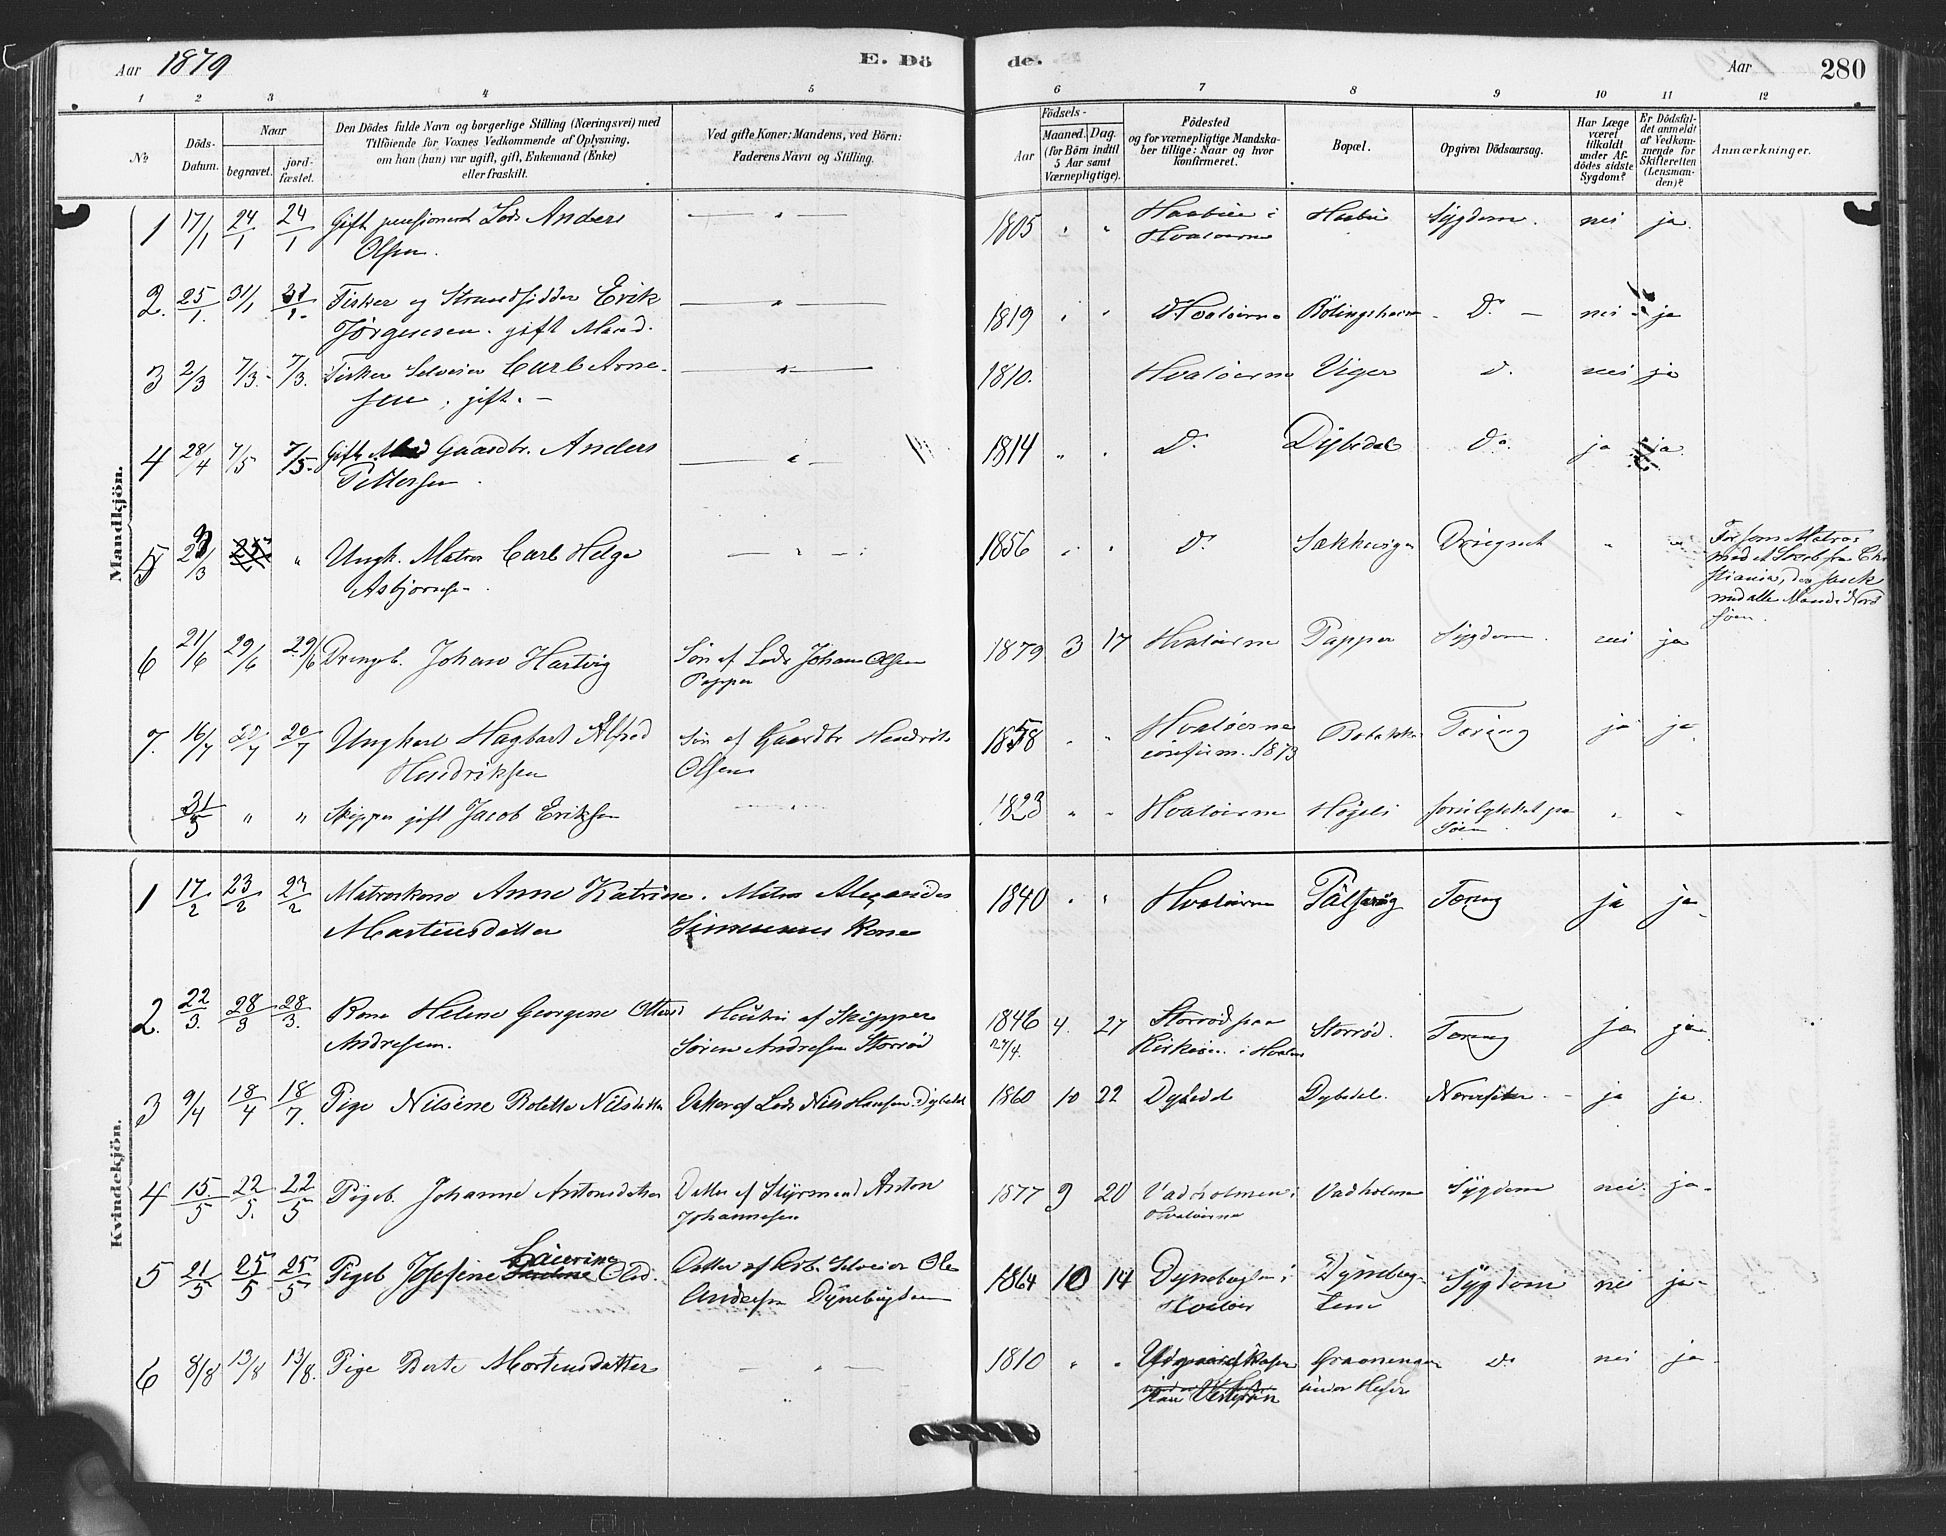 Aar 1879
E. Dö
de.
Aar
280
1 2 3 4 5 6 7 8 9 10 11 12
No
Döds-Datum.
Naar
begravet.
jord-fæstet.
Den Dödes fulde Navn og borgerlige Stilling (Næringsvei) med
Tilföiende for Voxnes Vedkommende af Oplysning,
om han (hun) var ugift, gift, Enkemand (Enke)
eller fraskilt.
Ved gifte Koner: Mandens, ved Börn:
Faderens Navn og Stilling.
Födsels-
Aar
Maaned. Dag.
(for Börn indtil
5 Aar samt
Værnepligtige).
Födested
og for værnepligtige Mandska-
ber tillige: Naar og hvor
konfirmeret.
Bopæl.
Opgiven Dödsaarsag.
Har Læge
været
tilkaldt
under Af-
dödes sidste
Sygdom?
Er Dödsfal-
det anmeldt
af Vedkom-
mende for
Skifteretten
(Lensman-
den)?
Anmærkninger.
Mandkjön.
1 17/1 24/1 24/1 Gift pensioneret Lods Anders 1805 " " i Sygdom. nei ja.
Olsen. Hvaløerne
2. 25/1. 31/1 31/1. Fisker og Strandsidder Erik 1819 " " Hvaløerne D. nei ja
Jørgensen. gift Mand.
3 2/3 7/3. 7/3. Fisker Selveier Carl Arne- 1810. Hvaløerne Viger D. nei ja
sen, gift.
4 28/4 7/5 7/5. Gift Mand Gaardbr. Anders 1814 " " D. Dybedal D. ja ja.
Pettersen.
5 Ungk. Matros Carl Helge 1856 " " D. Druknet " " For som Matros
Asbjørnsen. med et Skib fra Chri
stiania, der sank
med alle Mand i Nord
söen.
6 21/6 29/6 29/6 Drengeb. Johan Hartvig Søn af Lods Johan Olsen 1879 3 17 Hvaløerne Papper Sygdom. nei ja
Papper
7. 16/7 20/7 20/7 Ungkarl Hagbart Alfred Søn af Gaardbr Hendrik 1858 " " Hvaløerne Tæring ja ja
Hendriksen Olsen confirm. 1873
31/5 " " Skipper gift Jacob Eriksen 1823 " " Hvaløerne forulykket paa " "
Søen
Kvindekjön.
1 17/2 23/2 23/2 Matroskone Anne Katrine Matros Alexander 1840 " " Hvaløerne Tæring ja ja
Martinsdatter Simensens Kone
2. 22/3. 28/3 28/3. Kone Helene Georgine Hustru af Skipper 1846 4. 27 Storrød paa Storrød. Tæring ja ja
Andresen. Søren Andresen Storrød 27/4. Kirkeøen i Hvaløer
3 9/4 18/4 18/7. Pige Nilsine Bolette Nilsdatter Datter af Lods Nils Hansen Dybedal 1860 10 22 Dybedal Dybedal. Nervefeber ja ja.
4 15/5 22/5. 22/5 Pigeb. Johanne Antonsdatter Datter af Styrmand Anton 1877 9 20 Vadholmen i Vadholmen Sygdom nei ja
Johannesen Hvaløerne
5 21/5 25/5 25/5 Pigeb Josefine Laurine Olsd. Datter af Arb. Selveier Ole 1864 10 14 Dynebugten i Dynebug- Sygdom nei ja
Andersen Dynebugten Hvaløer ten
6 8/8 13/8 13/8. Pige Berte Mortensdatter 1810 " " D. nei ja
paa Vesterøen under